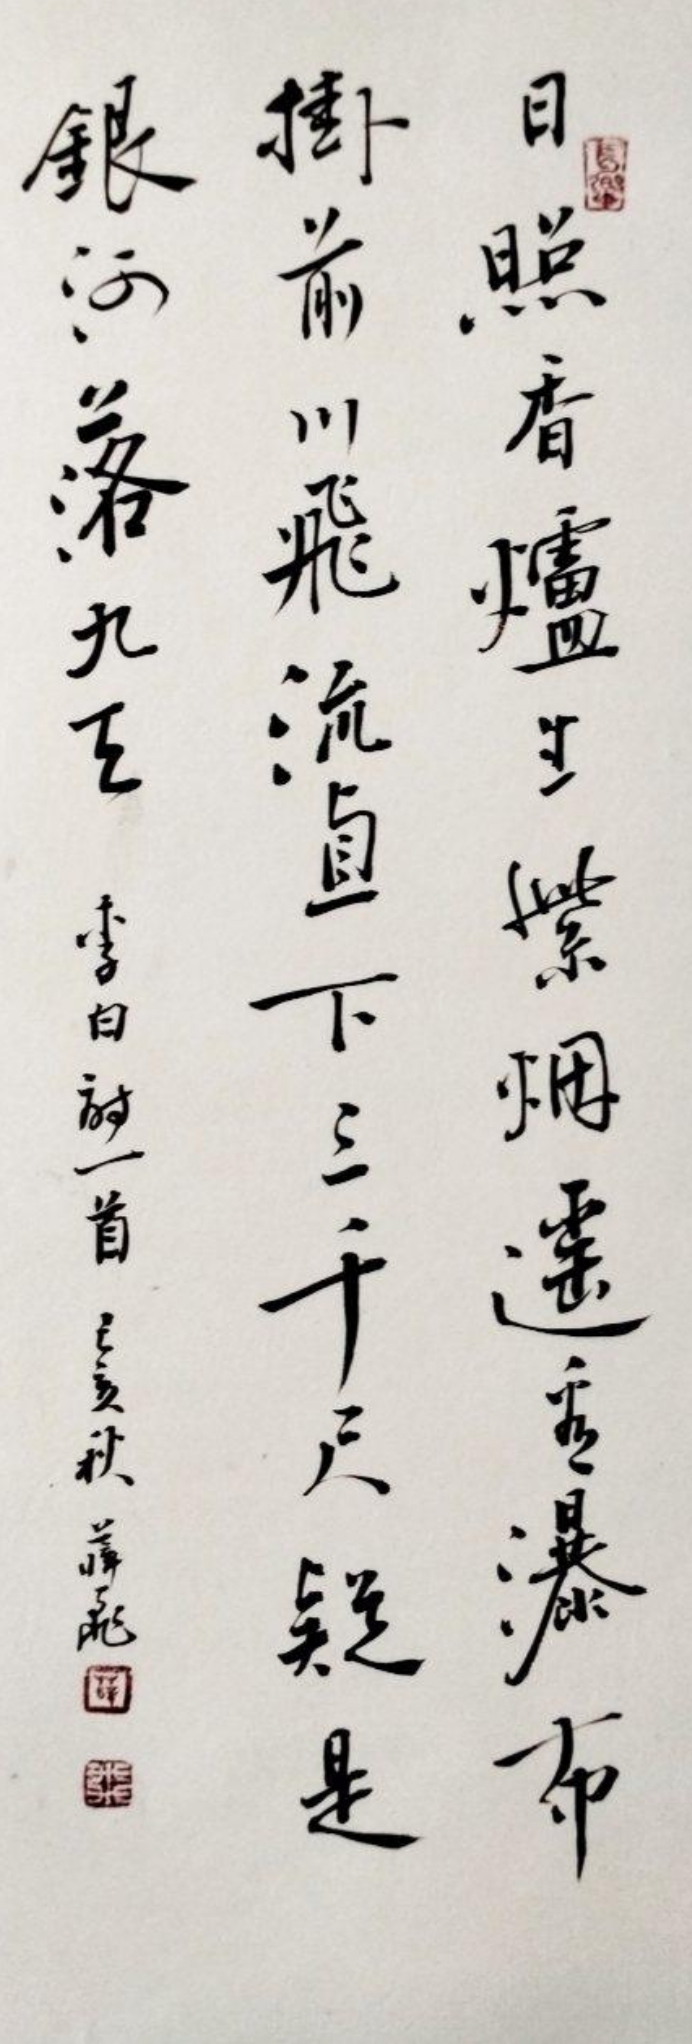 日照香爐生紫烟遥看瀑布
掛前川飛流直下三千尺疑是
銀河落九天
李白詩一首 己亥秋 薛飛